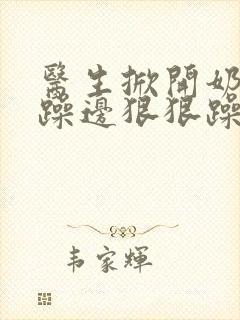 醫生掀開奶
躁邊狠狠躁
韦家輝